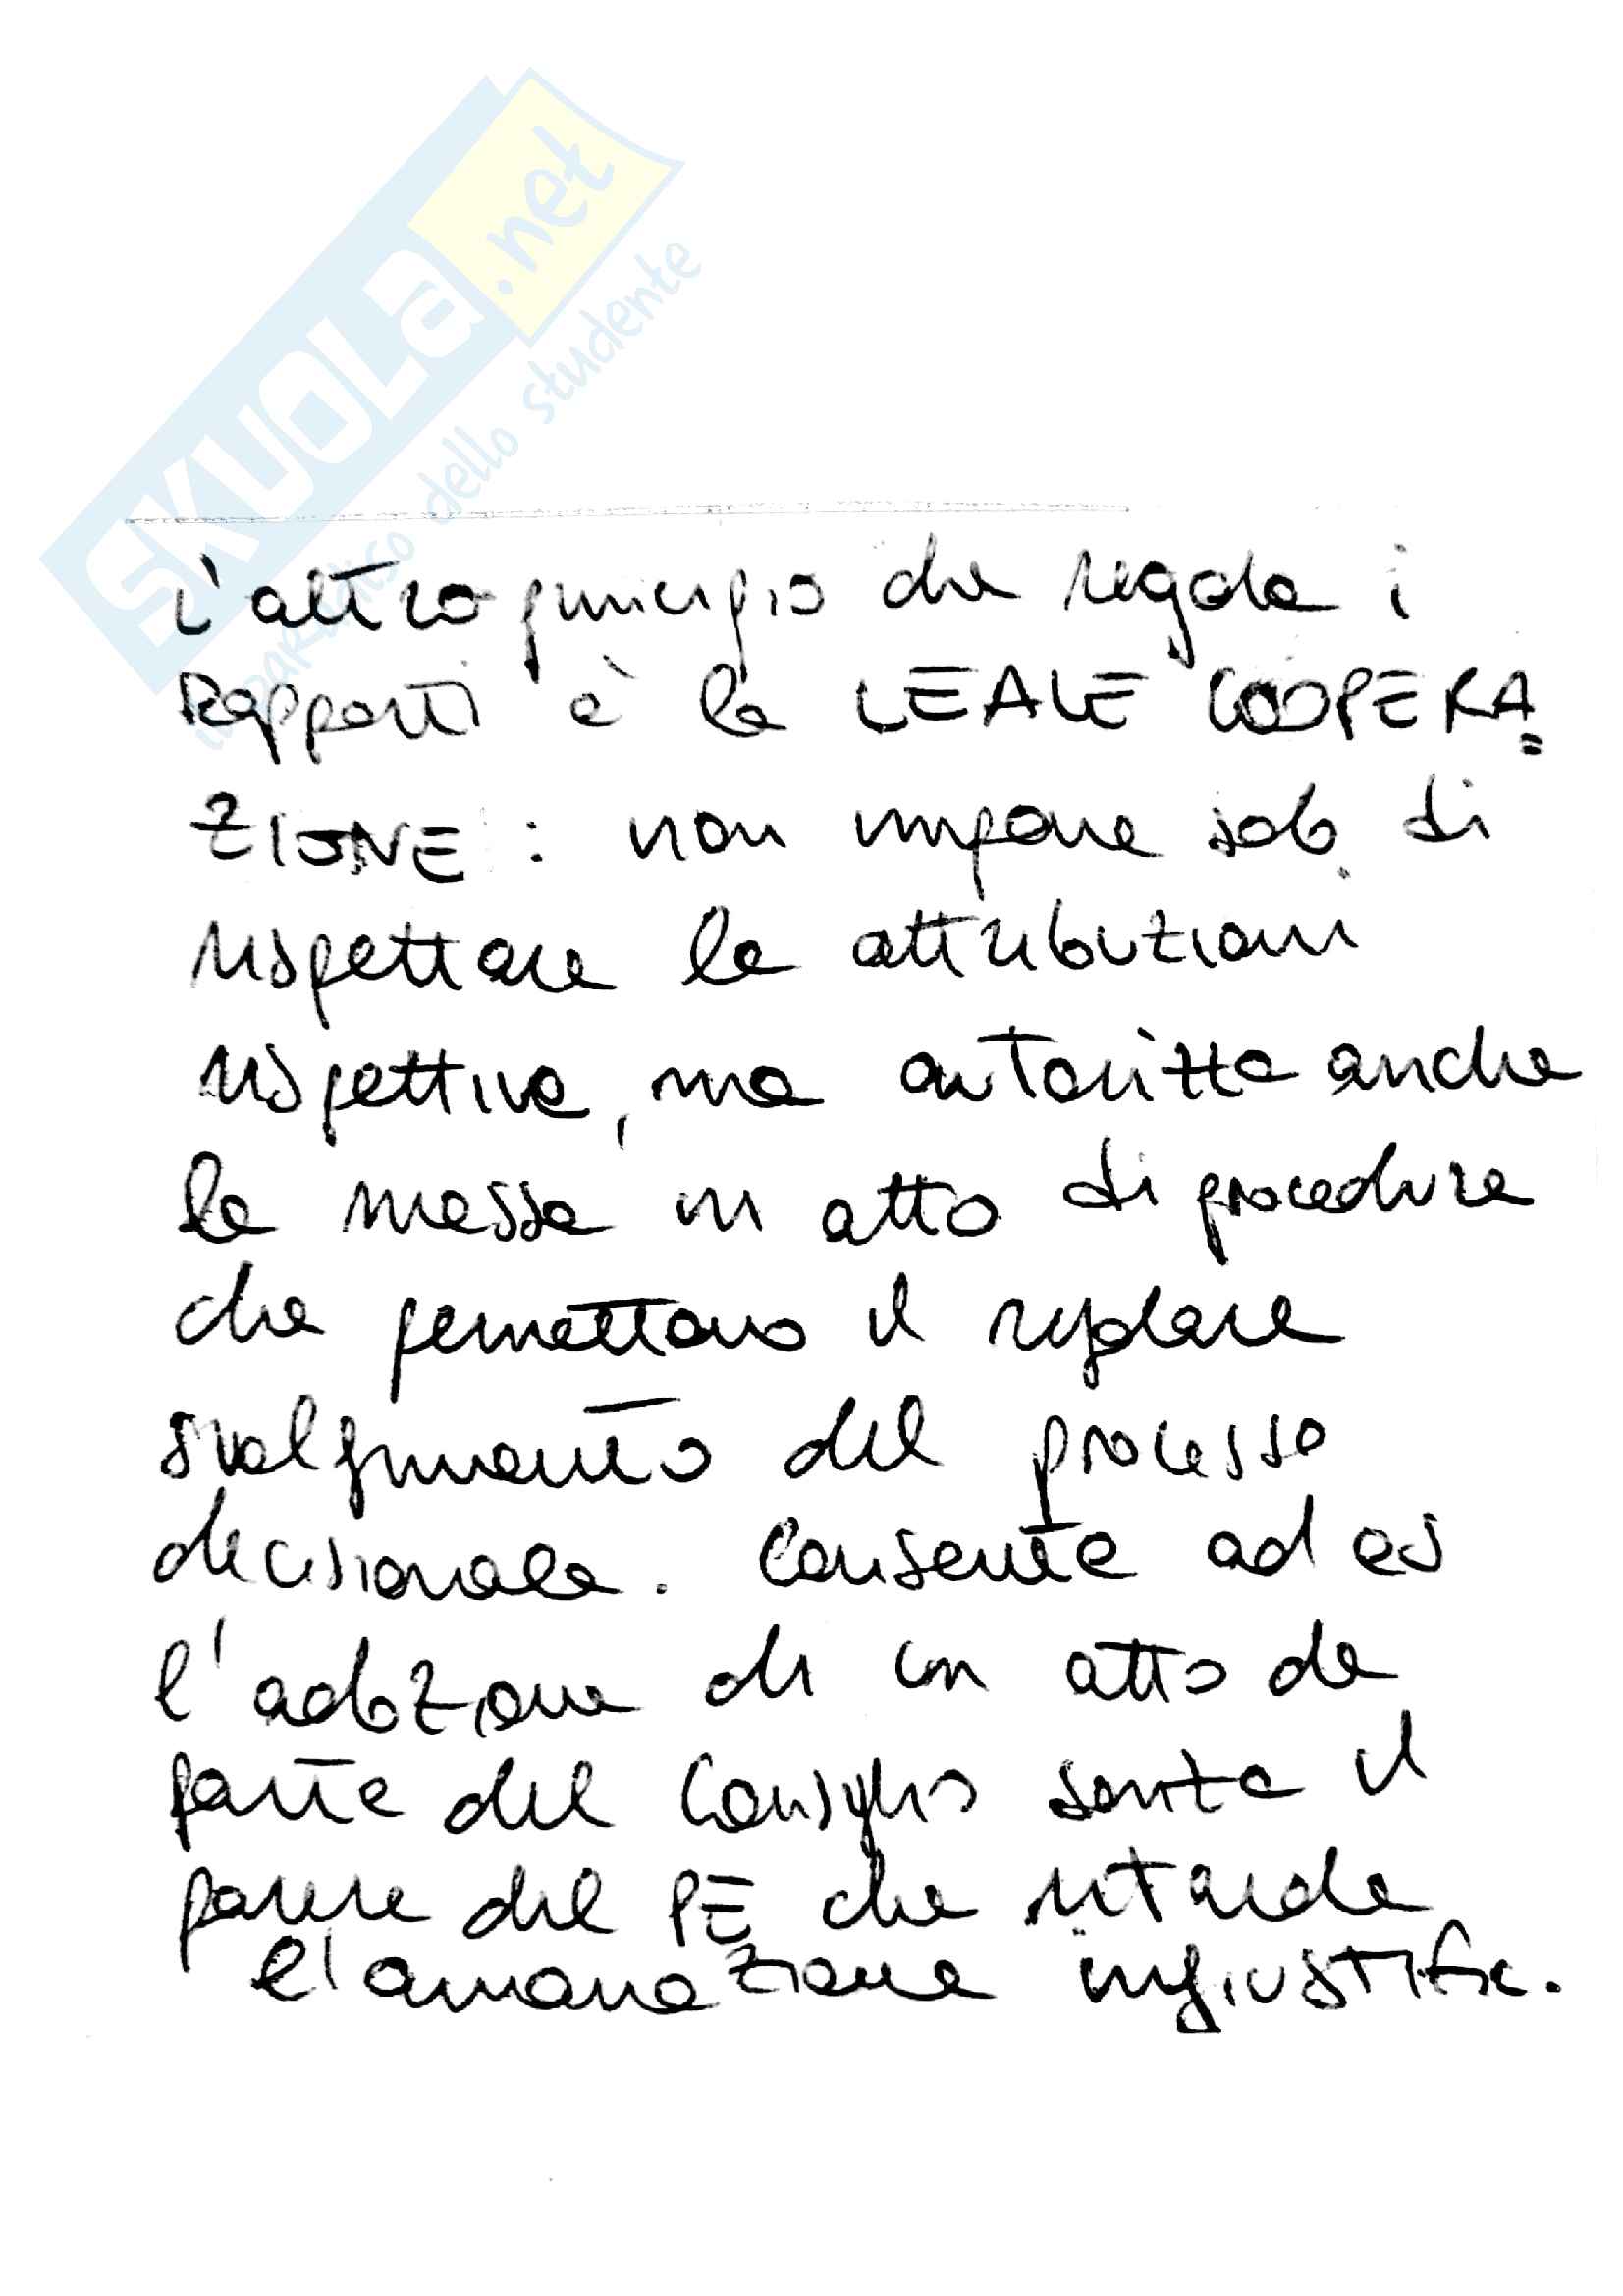 SKUOLa.net
imparadiso dello studente
L'altro principio che regola i
Rapporti è la LEALE COOPERA=
ZIONE : non impone solo di
rispettare le attribuzioni
rispettive, ma autorizza anche
la messa in atto di procedure
che permettano il regolare
svolgimento del processo
decisionale. Consente ad es
l'adozione di un atto da
parte del Consiglio senza il
parere del PE che ritarda
l'emanazione ingiustific.